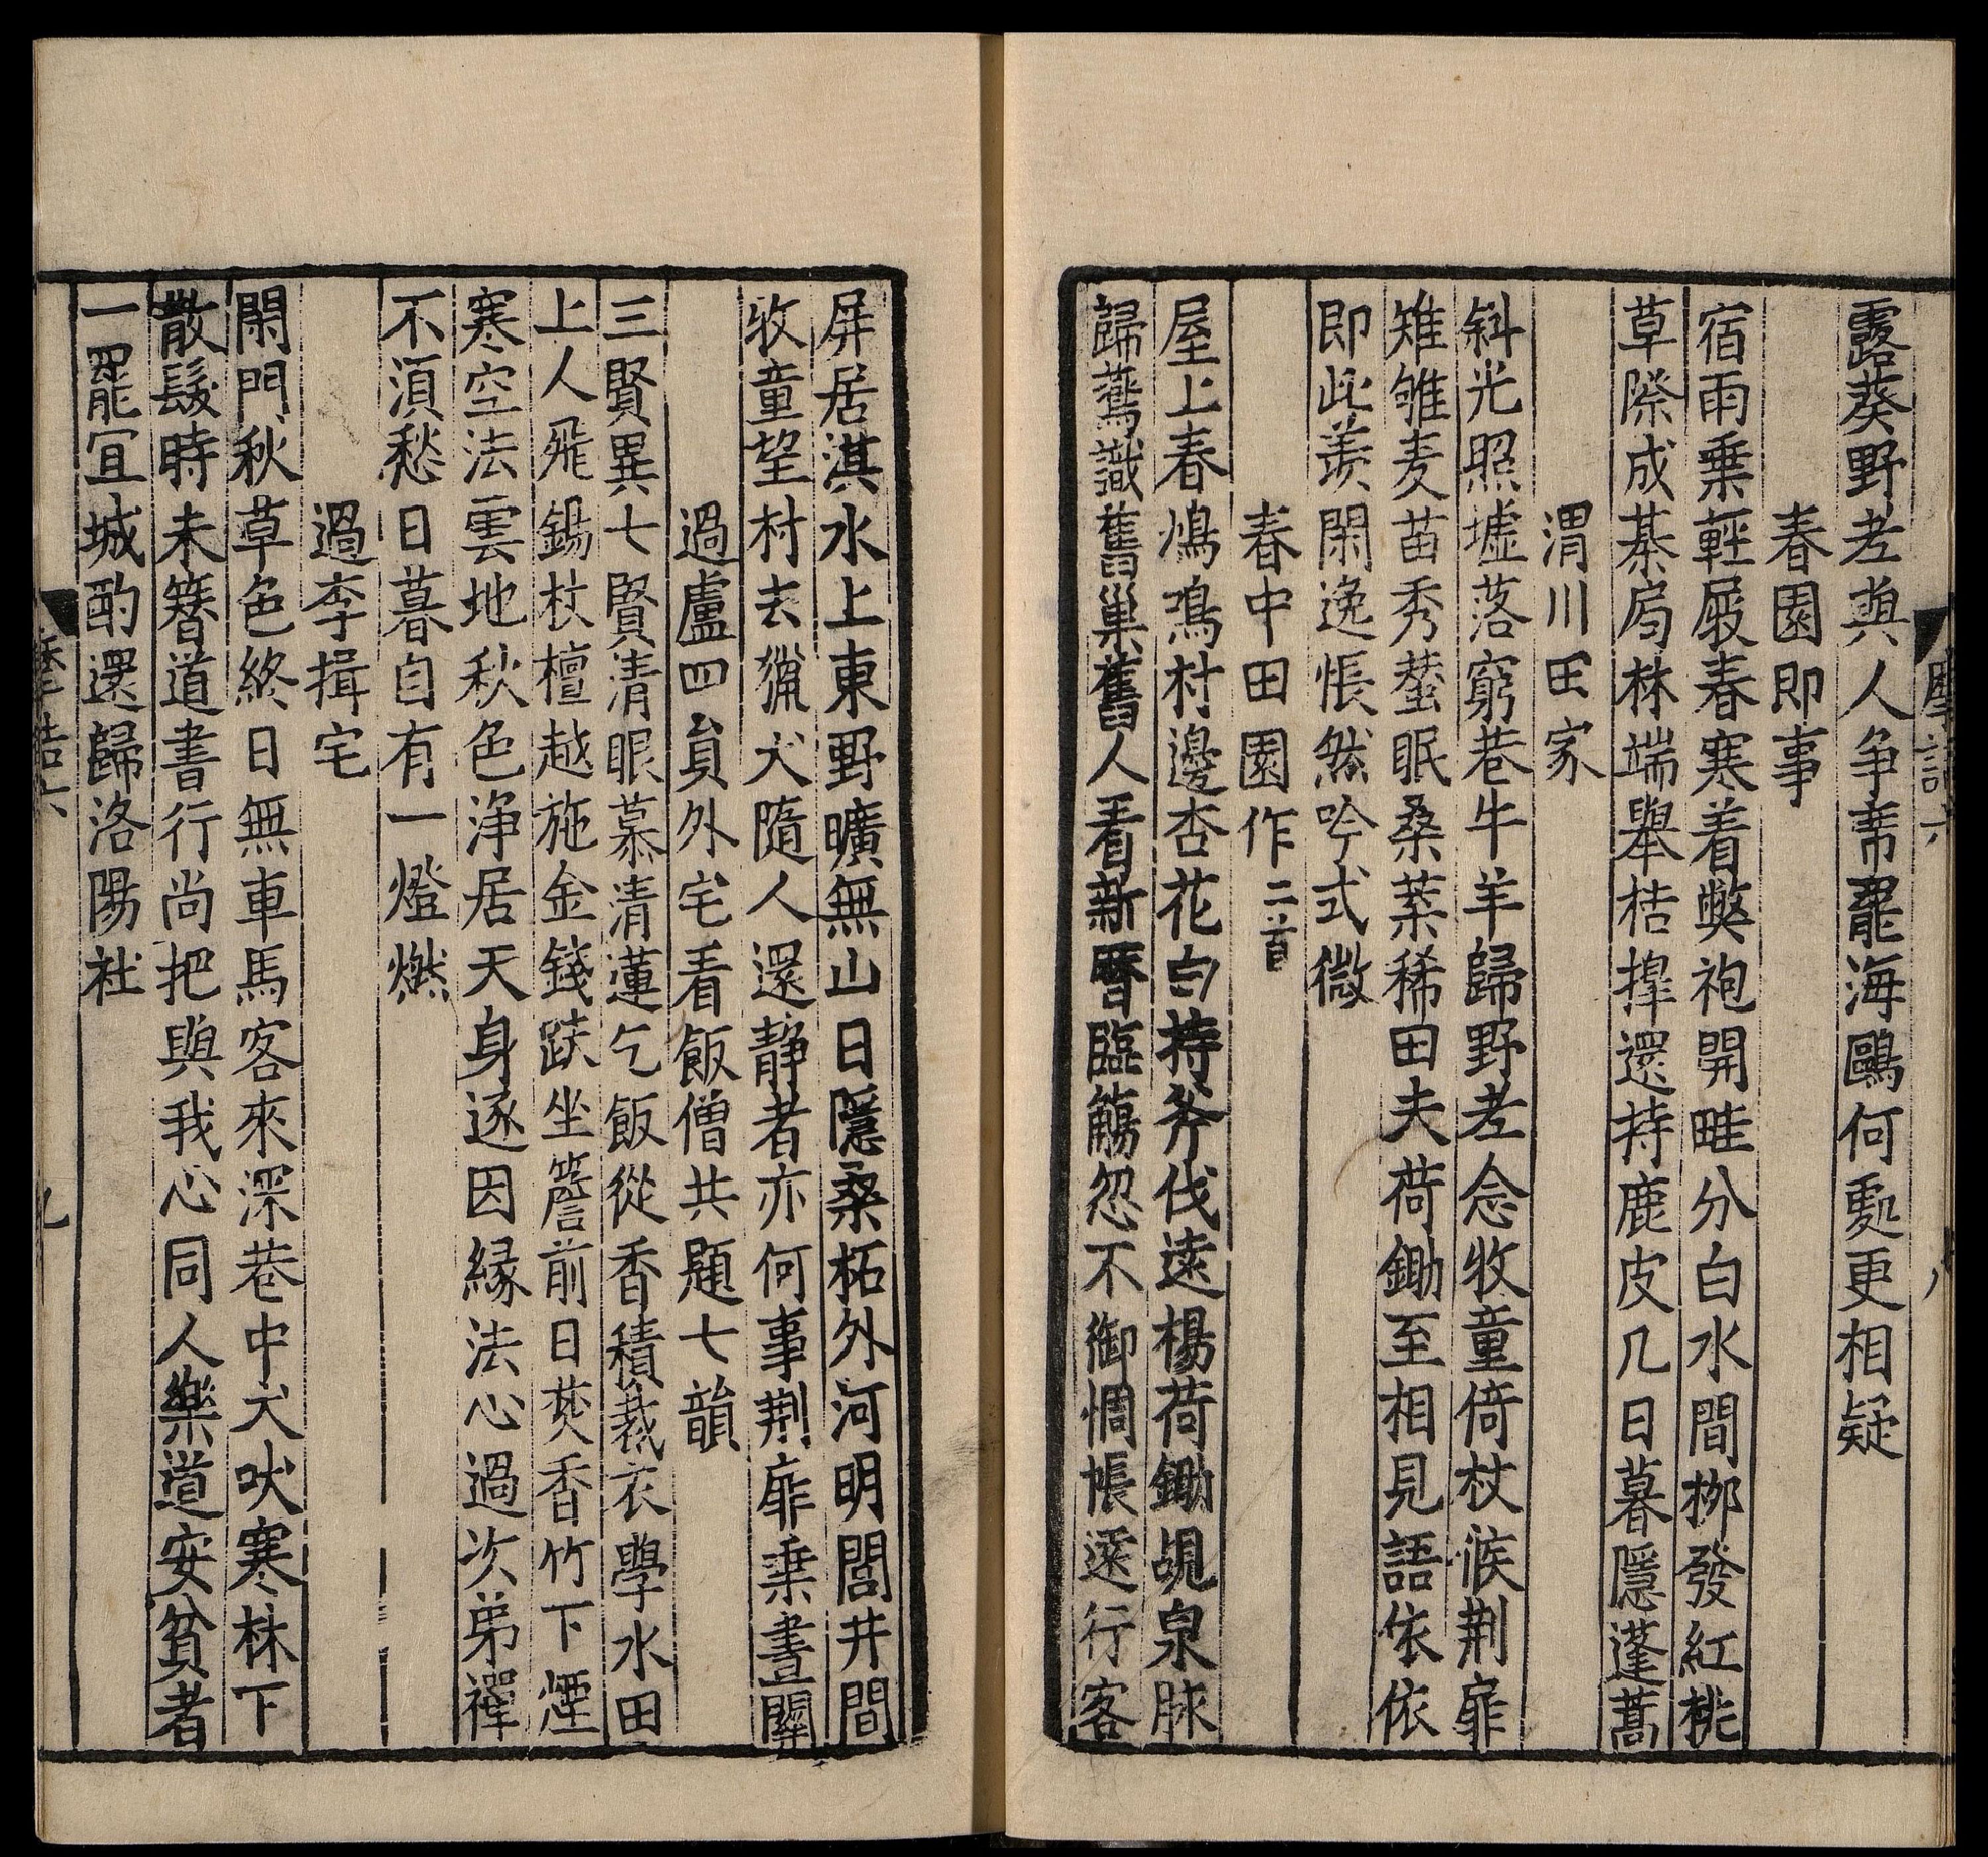 露葵野老與人爭席罷海鷗何處更相疑
春園即事
宿雨乗輕屐春寒着弊袍開畦分白水間柳發紅桃
草際成棊局林端舉桔橰還持鹿皮几日暮隱蓬蒿
渭川田家
斜光照墟落窮巷牛羊歸野老念牧童倚杖候荆扉
雉雊麦苗秀蠶眠桑葉稀田夫荷鋤至相見語依依
即此羨閑逸悵然吟式微
春中田園作二首
屋上春鳩鳴村邊杏花白持斧伐逺楊荷鋤覘泉脉
歸鷰識舊巢舊人看新曆臨觴忽不御惆悵逺行客
摩詰六
八
屏居淇水上東野曠無山日隱桑柘外河明閭井間
牧童望村去獵犬隨人還静者亦何事荆扉乗晝關
過盧四員外宅看飯僧共題七韻
三賢異七賢清眼慕清蓮乞飯從香積裁衣學水田
上人飛錫杖檀越施金錢趺坐簷前日焚香竹下煙
寒空法雲地秋色浄居天身逐因縁法心過次弟禪
不湏愁日暮自有一燈燃
過李揖宅
閑門秋草色終日無車馬客來深巷中犬吠寒林下
散髮時未簪道書行尚把與我心同人樂道安貧者
一罷冝城酌還歸洛陽社
摩詰六
九